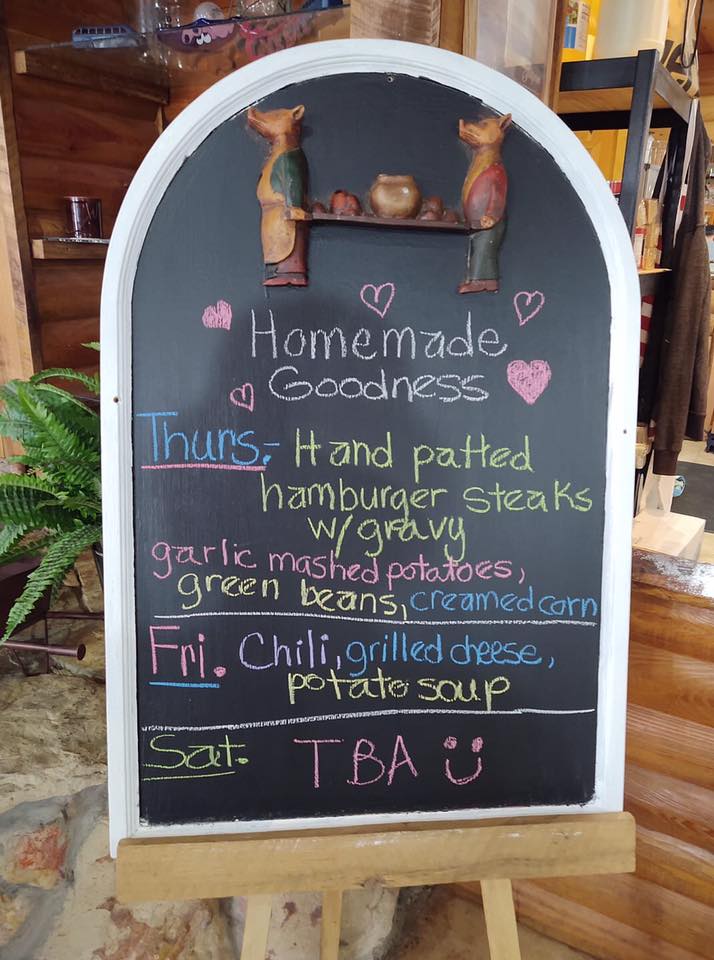 Homemade
Goodness
Thurs:- Hand patted
hamburger steaks
w/gravy
garlic mashed potatoes,
green beans, creamed corn
Fri. Chili, grilled cheese,
potato soup
Sat. TBA